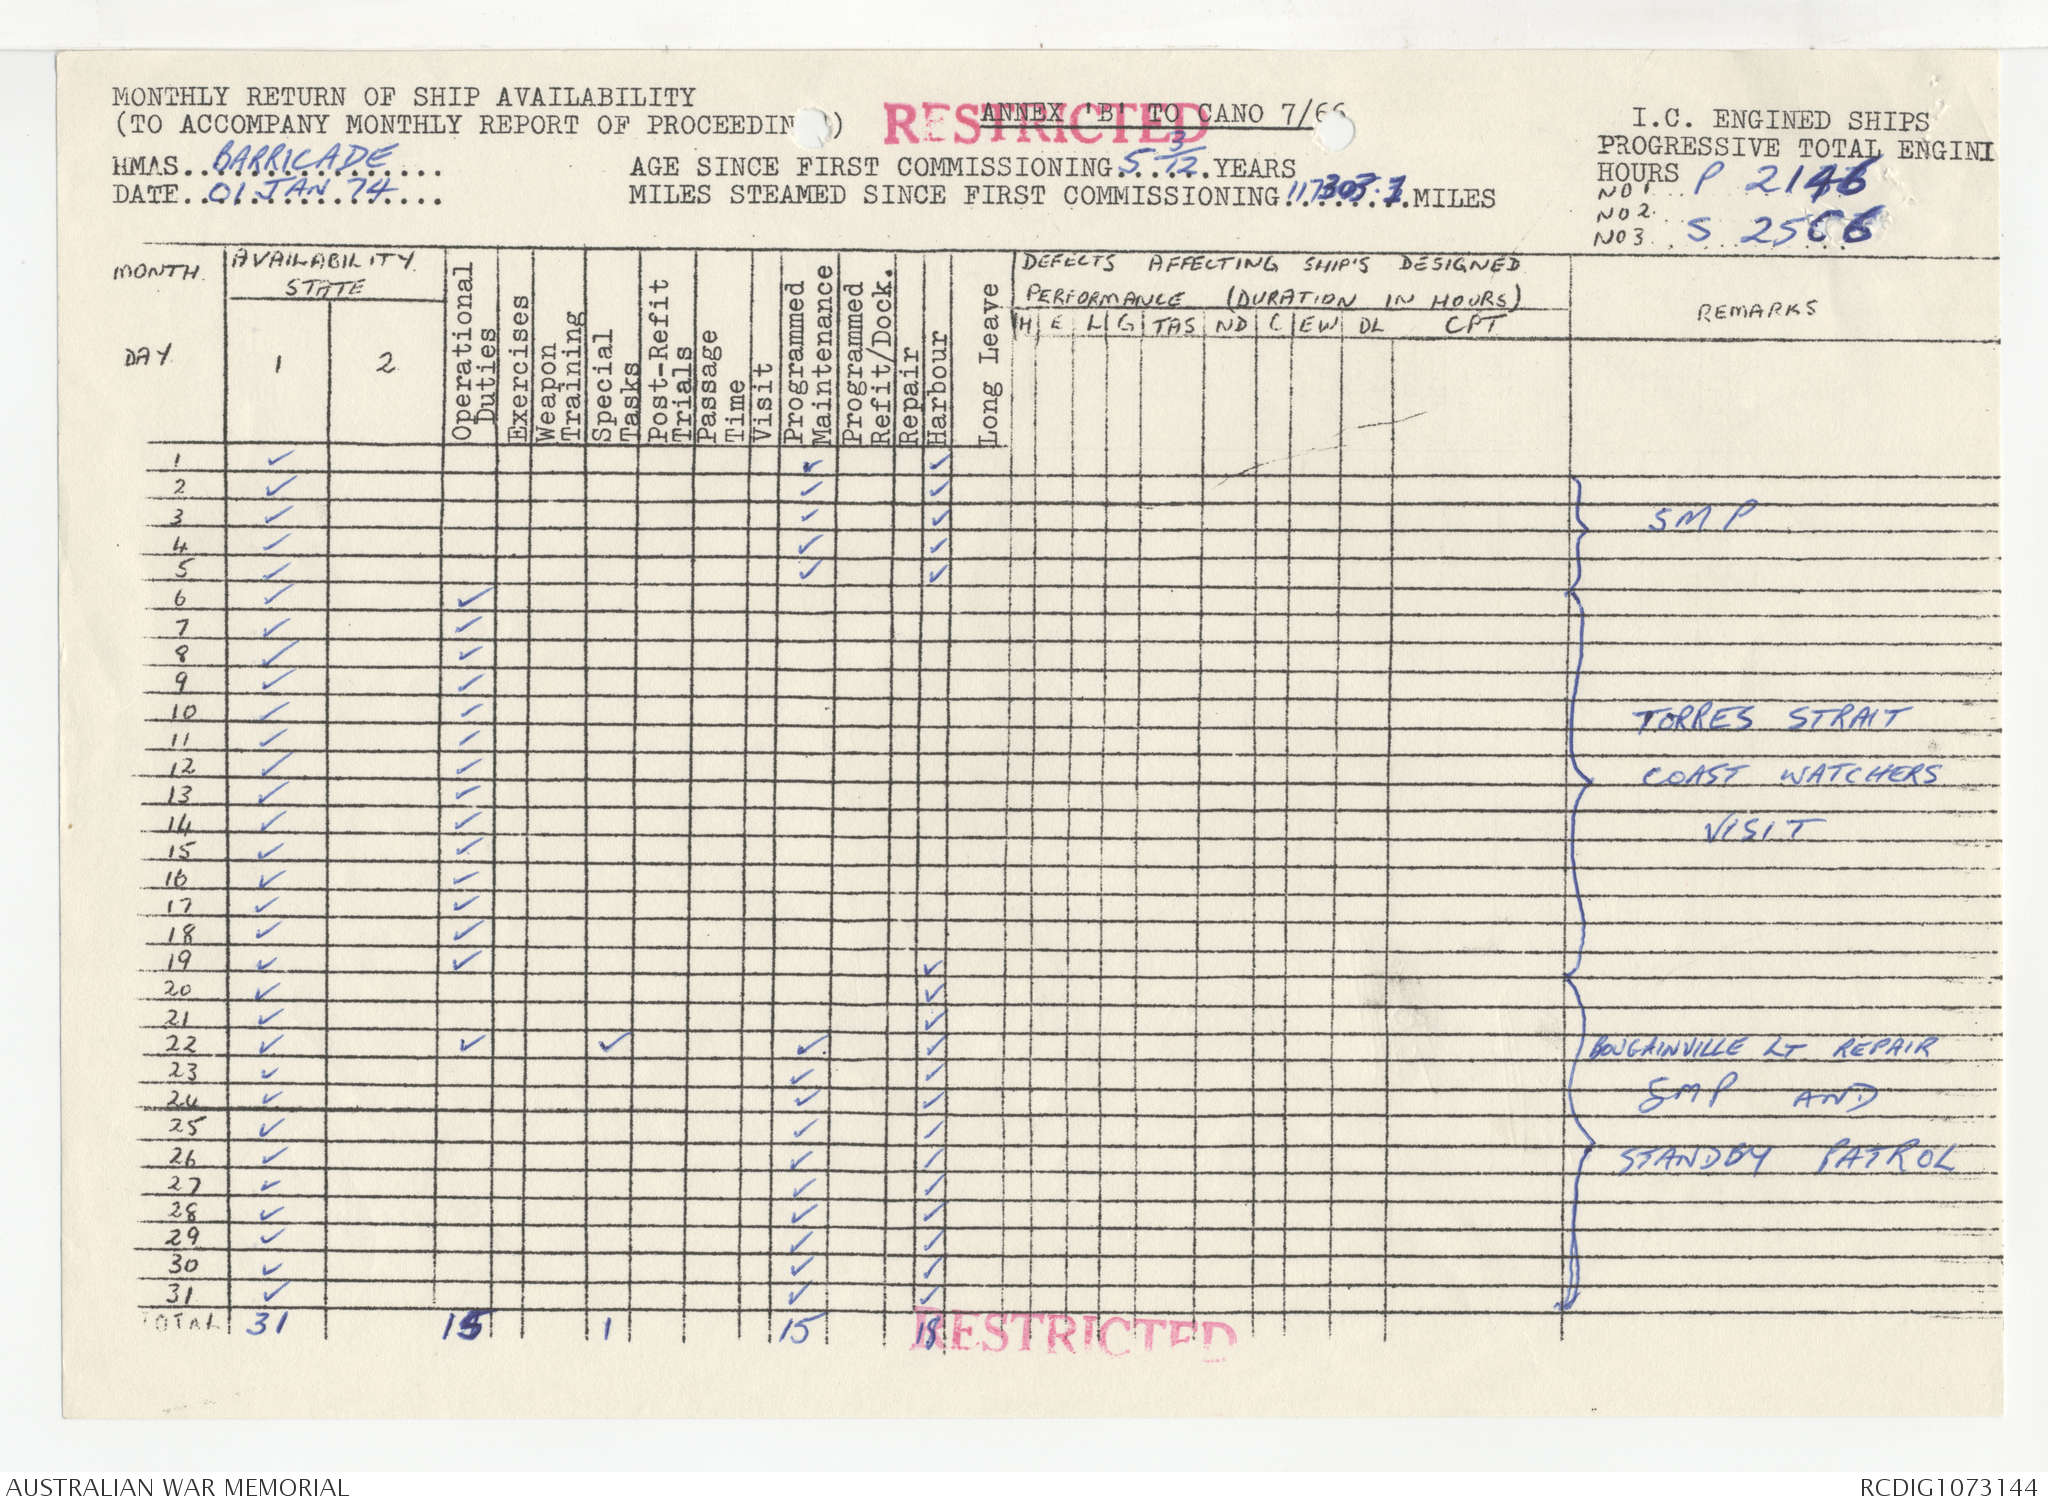 MONTHLY RETURN OF SHIP AVAILABILITY
(TO ACCOMPANY MONTHLY REPORT OF PROCEEDIN )
RESTRICTED
ANNEX 'B' TO CANO 7/66
I.C. ENGINED SHIPS
PROGRESSIVE TOTAL ENGINE
HOURS
NO 1... P 2146
NO 2..
NO 3.. S 2566
HMAS.. BARRICADE
DATE.. 01 JAN 74
AGE SINCE FIRST COMMISSIONING 5 3/12 YEARS
MILES STEAMED SINCE FIRST COMMISSIONING MILES
MONTH
DAY
AVAILABILITY
STATE
1
2
Operational
Duties
Exercises
Weapon
Training
Special
Tasks
Post-Refit
Trials
Passage
Time
Visit
Programmed
Maintenance
Programmed
Refit/Dock.
Repair
Harbour
Long Leave
DEFECTS AFFECTING SHIP'S DESIGNED
PERFORMANCE (DURATION IN HOURS)
H E L G TAS ND C EW DL CPT
REMARKS
1 ✓ ✓ ✓
2 ✓ ✓ ✓
3 ✓ ✓ ✓ SMP
4 ✓ ✓ ✓
5 ✓ ✓ ✓
6 ✓ ✓
7 ✓ ✓
8 ✓ ✓
9 ✓ ✓
10 ✓ ✓ TORRES STRAIT
11 ✓ ✓
12 ✓ ✓ COAST WATCHERS
13 ✓ ✓
14 ✓ ✓ VISIT
15 ✓ ✓
16 ✓ ✓
17 ✓ ✓
18 ✓ ✓
19 ✓ ✓ ✓
20 ✓ ✓
21 ✓ ✓
22 ✓ ✓ ✓ ✓ ✓ BOUGAINVILLE LT REPAIR
23 ✓ ✓ ✓
24 ✓ ✓ ✓ SMP AND
25 ✓ ✓ ✓
26 ✓ ✓ ✓ STANDBY PATROL
27 ✓ ✓ ✓
28 ✓ ✓ ✓
29 ✓ ✓ ✓
30 ✓ ✓ ✓
31 ✓ ✓ ✓
TOTAL 31 15 1 15 18
RESTRICTED
AUSTRALIAN WAR MEMORIAL
RCDIG1073144